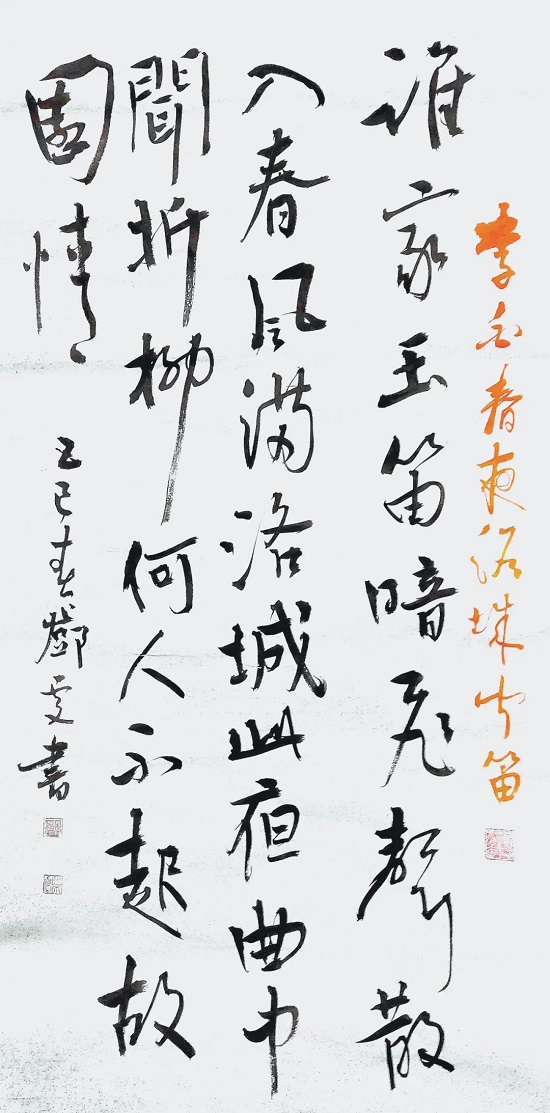 李白春夜洛城聞笛
誰家玉笛暗飛聲散
入春風滿洛城此夜曲中
聞折柳何人不起故
園情
乙巳春鄧雯書